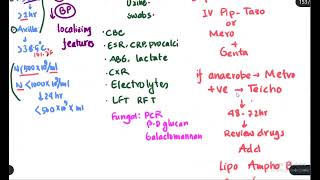 >1hr
→ Axilla
>38.5°c
↓ BP
localizing
features
N <500×10⁶/ml
N <1000×10⁶/ml
↓ 24hr
<500×10⁶/ml
Urine
swabs
• CBC
• ESR, CRP, procalci
• ABG, lactate
• CXR
• Electrolytes
• LFT RFT
Fungal: PCR
β-D glucan
Galactomannan
IV Pip-Tazo
or
Mero
+
Genta
if anaerobe → Metro
+VE → Teicho
48-72hr
Review drugs
Add
Lipo Ampho B